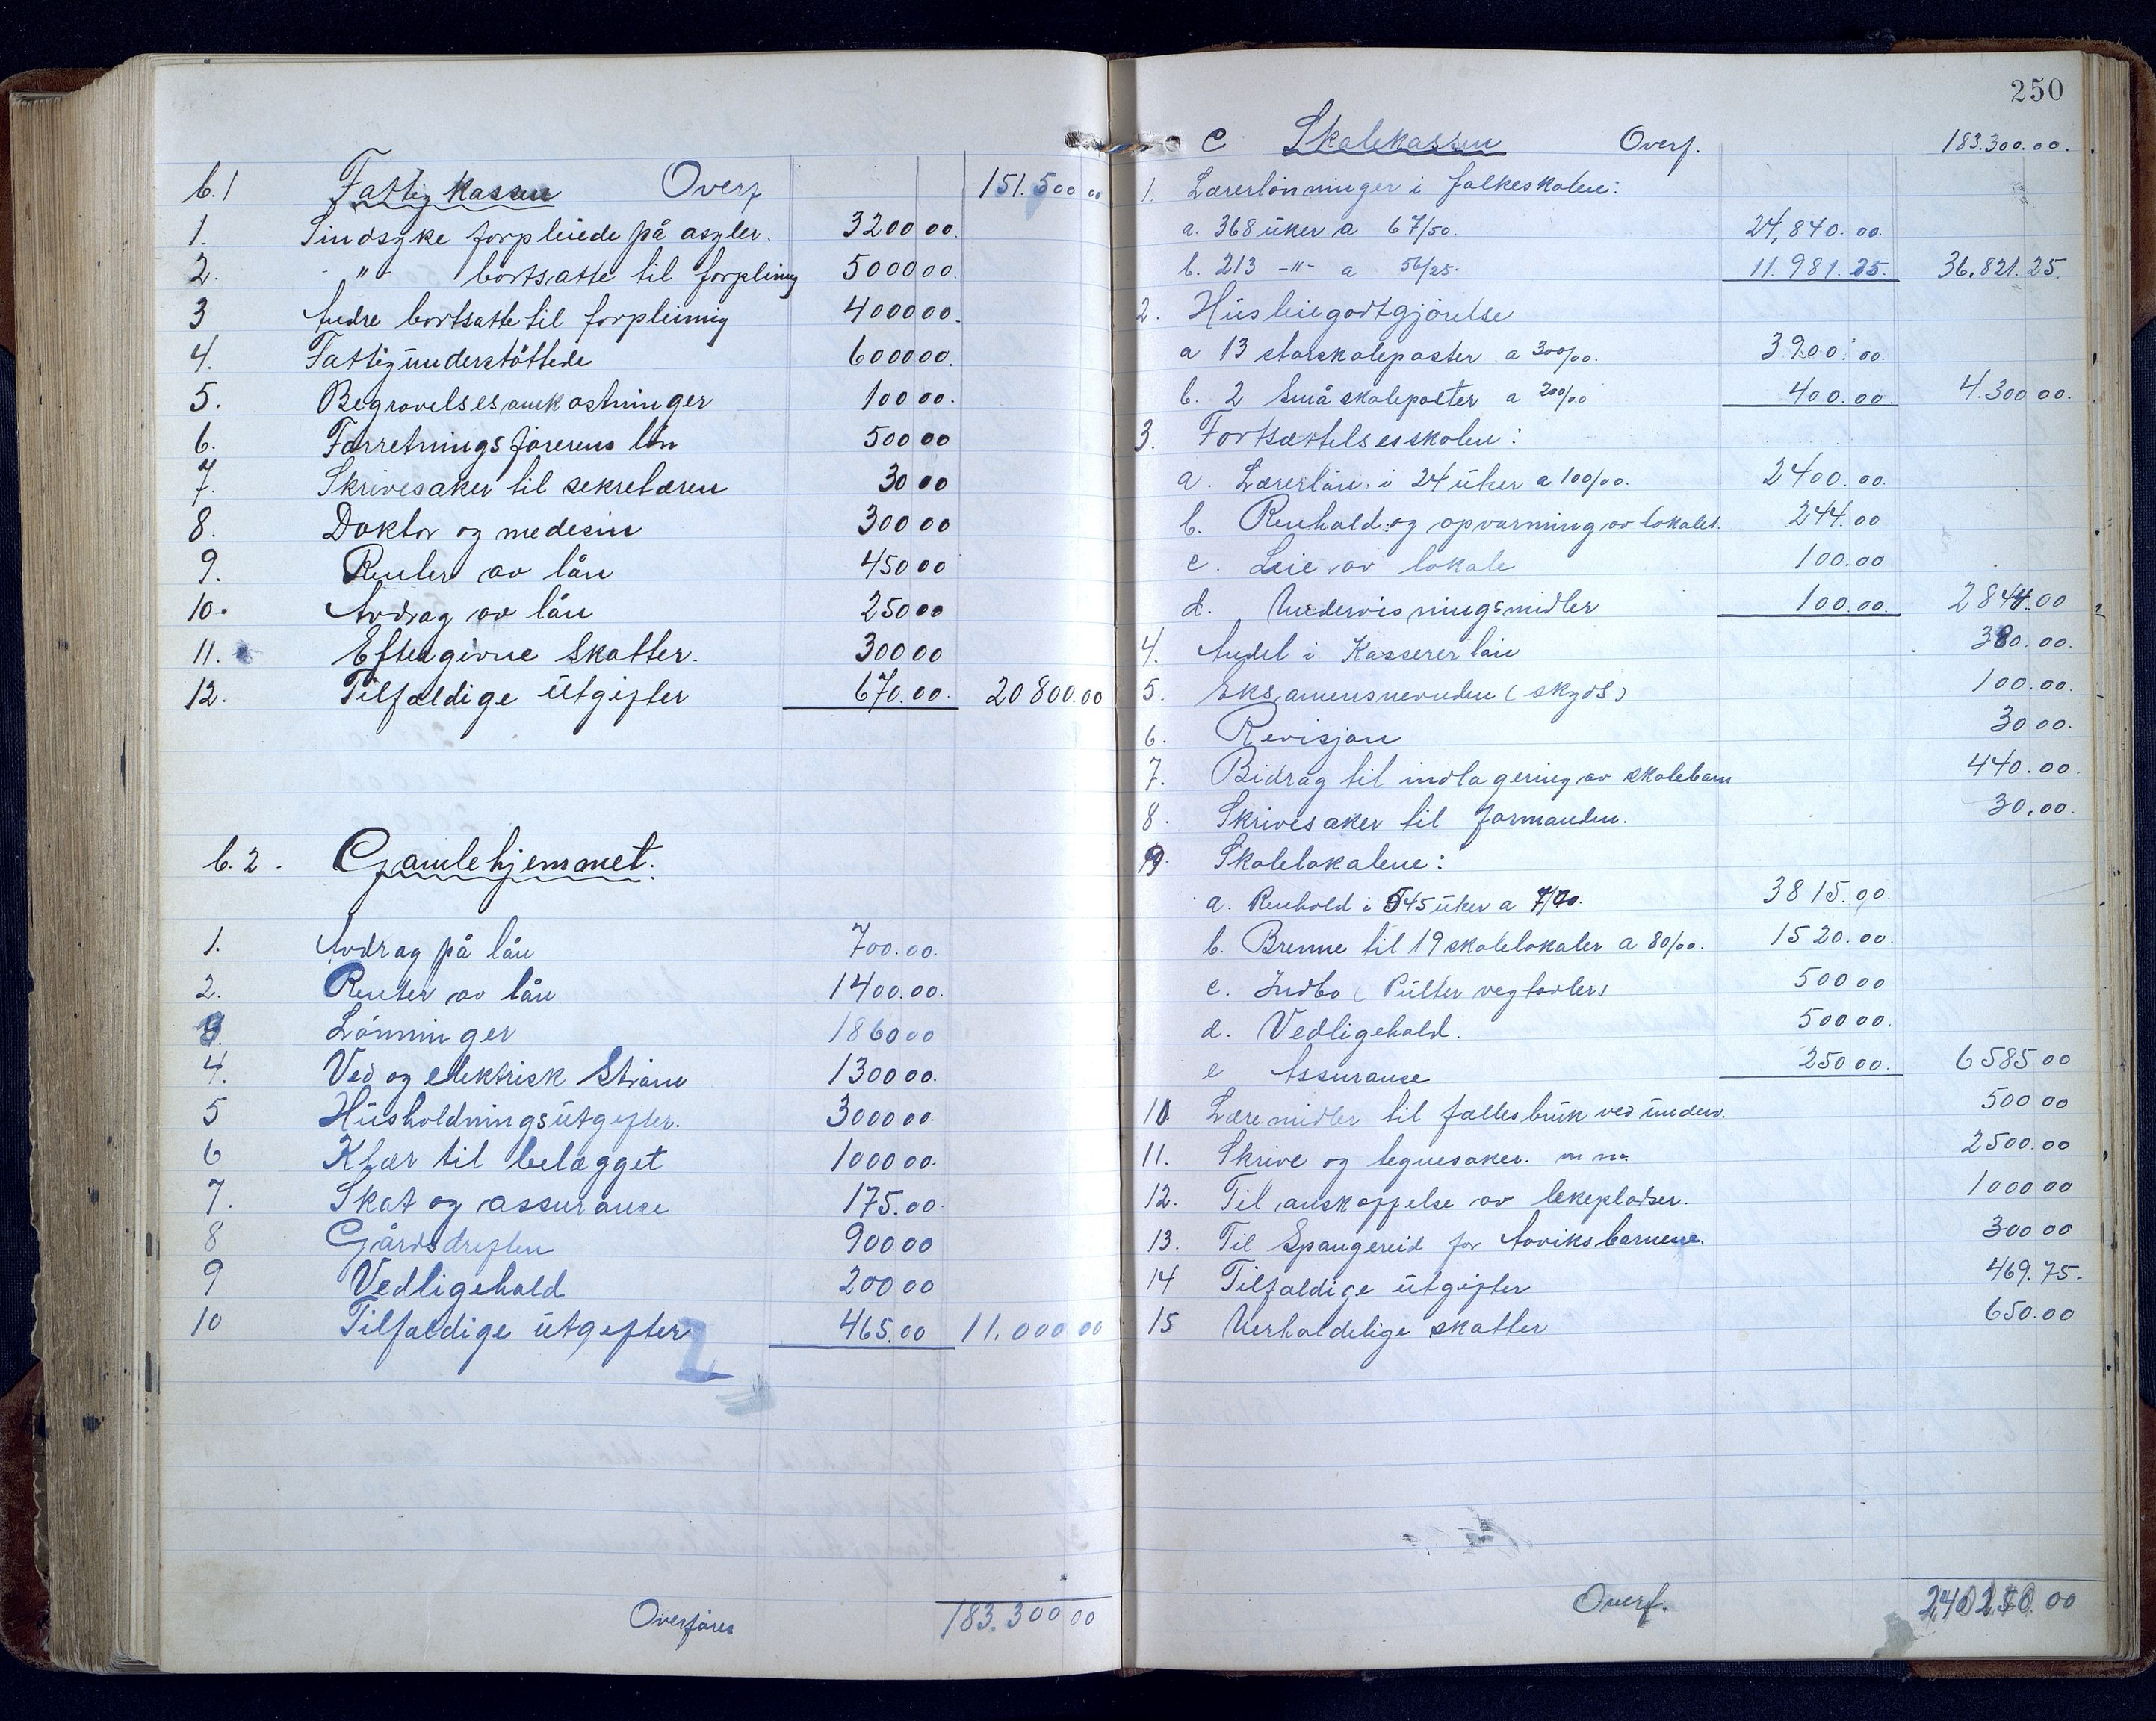 b.1 Fattigkassen Overf 151.500 00
1. Sindsyke forpleiede på asyler. 3200 00.
2. - " - bortsatte til forpleining 5000 00.
3 Andre bortsatte til forpleining 4000 00.
4. Fattigunderstöttede 6000 00.
5. Begravelsesomkostninger 100 00.
6. Forretningsförerens lön 500 00
7. Skrivesaker til sekretæren 30 00
8. Doktor og medesin 300 00
9. Renter av lån 450 00
10. Avdrag av lån 250 00
11. Eftergivne skatter. 300 00
12. Tilfældige utgifter 670.00. 20 800.00
b.2. Gamlehjemmet:
1. Avdrag på lån 700.00.
2. Renter av lån 1400.00.
3. Lönninger 1860 00
4. Ved og elektrisk Ström 1300 00.
5 Husholdningsutgifter. 3000 00.
6 Klær til belægget 1000 00.
7. Skat og assuranse 175.00.
8 Gårdsdriften 900 00
9 Vedligehold 200 00
10 Tilfældige utgifter 465.00 11.000 00
Overföres 183.300 00
250
C Skolekassen Overf. 183.300.00.
1. Lærerlönninger i folkeskolen:
a. 368 uker a 67/50. 24,840.00.
b. 213 -"- a 56/25. 11.981.25. 36,821.25.
2. Husleiegodtgjörelse
a 13 storskoleposter a 300/00. 3900.00.
b. 2 Småskoleposter a 200/00 400.00. 4.300 00.
3. Fortsættelsesskolen:
a. Lærerlön i 24 uker a 100/00. 2400.00.
b. Renhold og opvarming av lokalet. 244.00
c. Leie av lokale 100.00
d. Undervisningsmidler 100.00. 2844.00
4. Andel i Kassererlön 380.00.
5. Eksamensnevnden (skyds) 100.00.
6. Revisjon 30 00.
7. Bidrag til indlogering av skolebarn 440.00.
8. Skrivesaker til formanden. 30.00.
9. Skolelokalene:
a. Renhold i 545 uker a 7/00. 3815.00.
b. Brenne til 19 skolelokaler a 80/00. 1520.00.
c. Indbo (Pulter vegtavler) 500 00
d. Vedligehold. 500 00.
e Assuranse 250 00. 6585 00
10 Læremidler til fællesbruk ved underv. 500 00
11. Skrive og tegnesaker. m m. 2500.00
12. Til anskaffelse av lekeplasser. 1000 00
13. Til Spangereid for Aaviksbarnene. 300 00
14 Tilfældige utgifter 469.75.
15 Uerholdelige skatter 650.00
Overf. 00